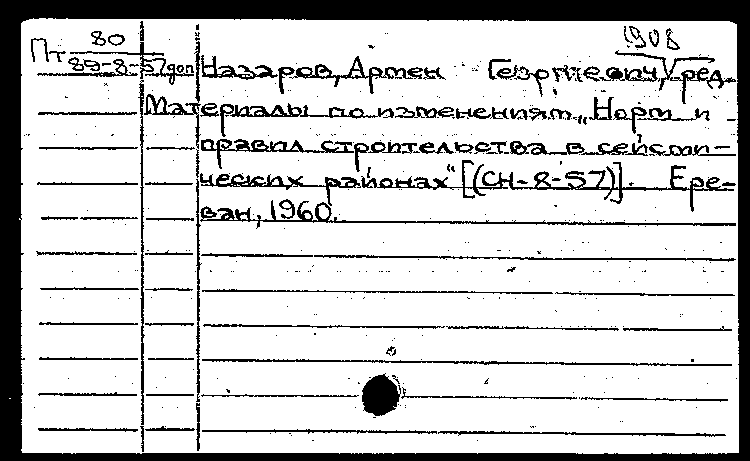 1908
Пт 80
89-8-57доп Назаров, Армен Георгиевич, ред.
Материалы по изменениям „Норм и
правил строительства в сейсми-
ческих районах" [(СН-8-57)]. Ере-
ван, 1960.